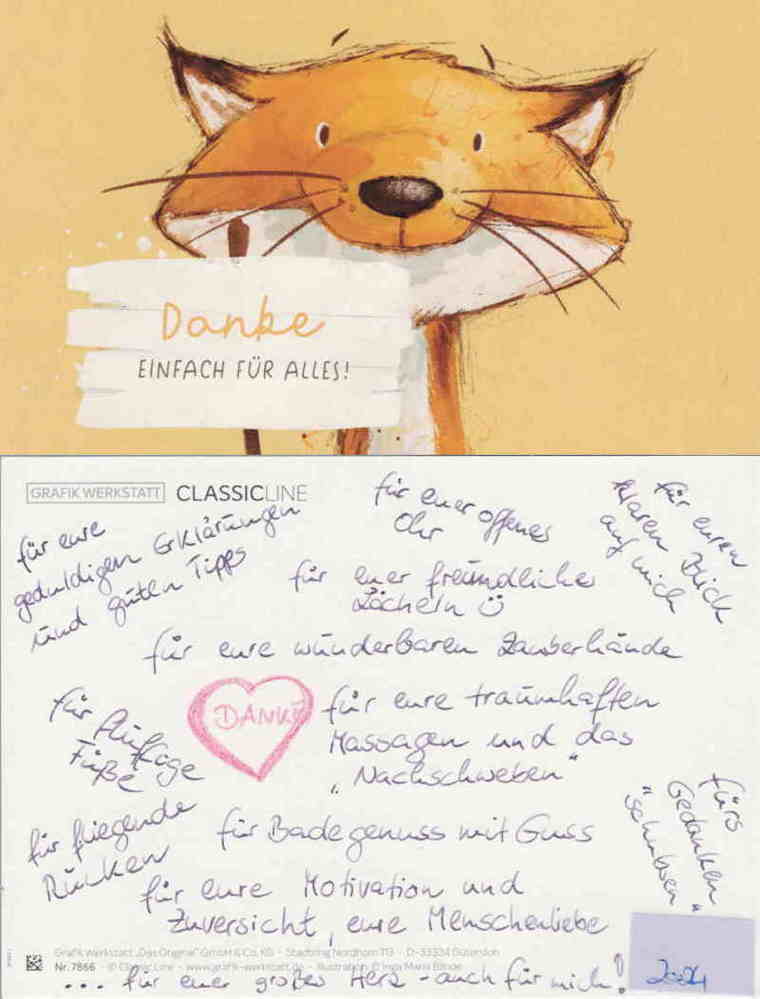 Danke
EINFACH FÜR ALLES!
GRAFIK WERKSTATT CLASSICLINE
für eure
geduldigen Erklärungen
und guten Tipps
für euer offenes
Ohr
für euren
klaren Blick
auf mich
für euer freundliches
Lächeln
für eure wunderbaren Zauberhände
für fluffige
Füße
DANKE
für eure traumhaften
Massagen und das
„Nachschweben"
für fliegende
Rücken
für Badegenuss mit Guss
fürs
Gedanken
"schubsen"
für eure Motivation und
Zuversicht, eure Menschenliebe
Grafik Werkstatt „Das Original" GmbH & Co. KG · Stadtring Nordhorn 113 · D-33334 Gütersloh
Nr. 7866 · © Classic Line · www.grafik-werkstatt.de · Illustration: © Inga Maria Blinde
... für euer großes Herz - auch für mich!